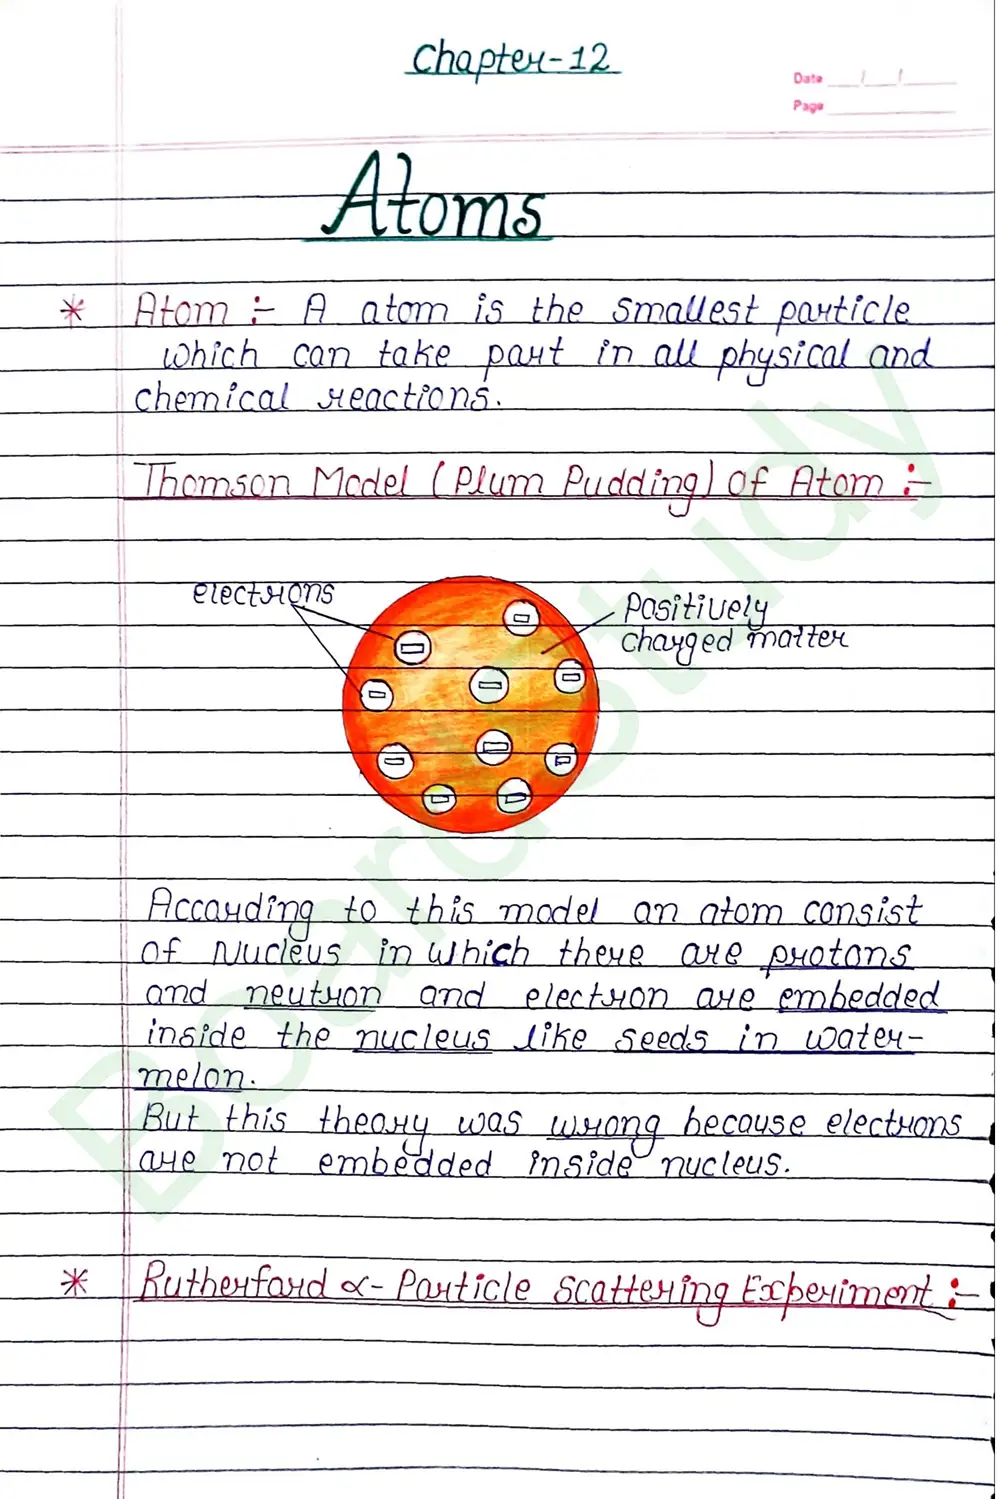 Chapter-12
Date __/__/__
Page ______
Atoms
* Atom :- A atom is the smallest particle
which can take part in all physical and
chemical reactions.
Thomson Model (Plum Pudding) of Atom :-
electrons
Positively
charged matter
According to this model an atom consist
of Nucleus in which there are protons
and neutron and electron are embedded
inside the nucleus like seeds in water-
melon.
But this theory was wrong because electrons
are not embedded inside nucleus.
* Rutherford α-Particle Scattering Experiment :-
Board Study